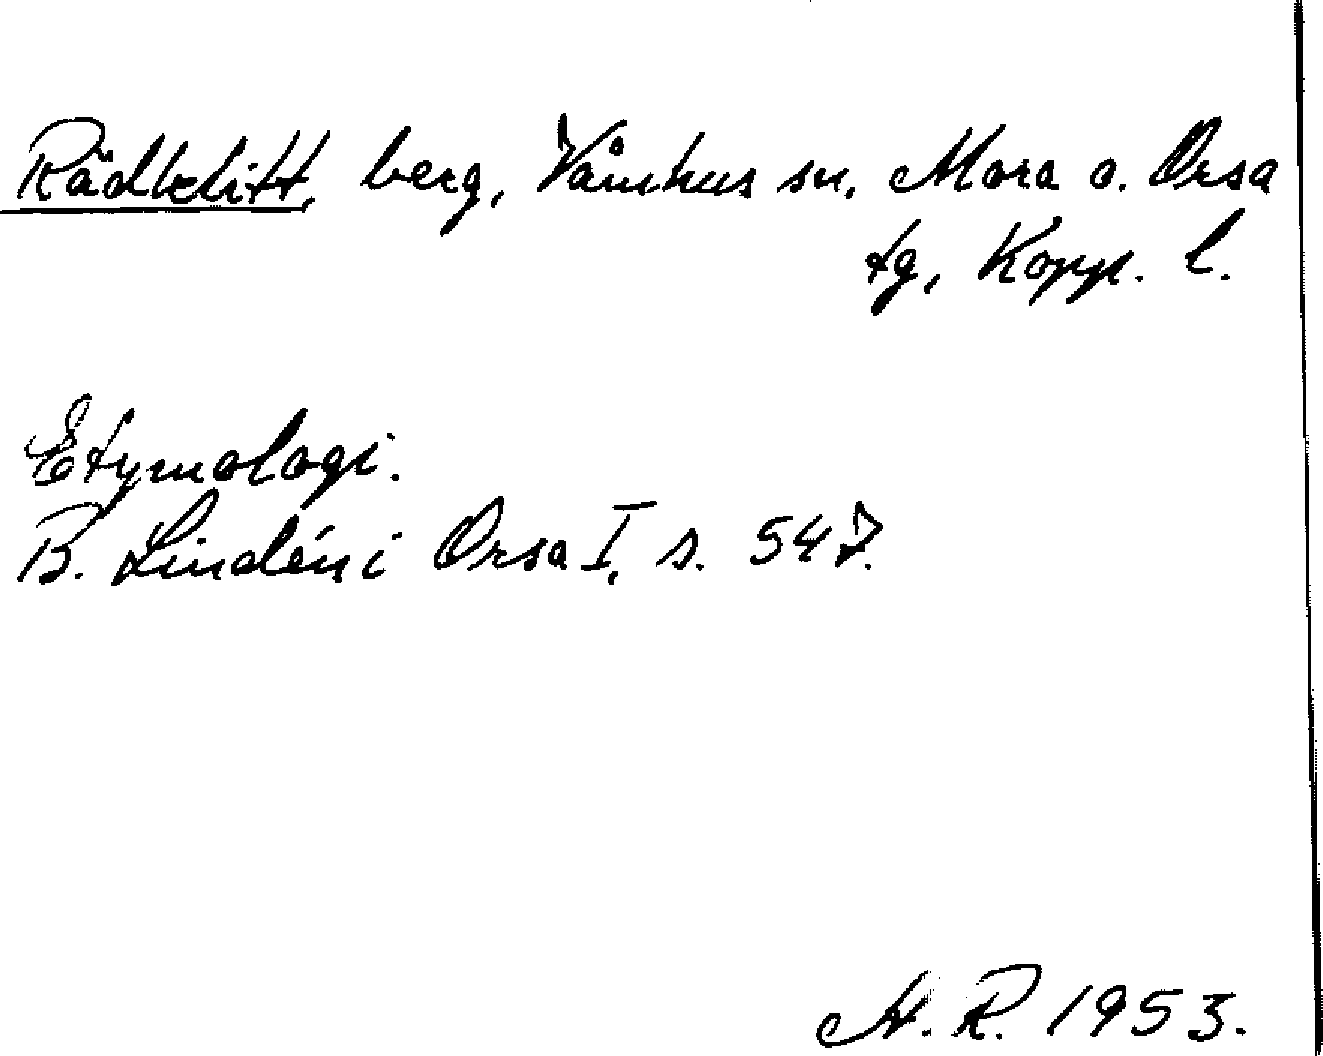 Rädklitt, berg, Våmhus sn, Mora o. Orsa
tg, Kopp. l.
Etymologi.
B. Lindén i Orsa I, s. 547.
A. R. 1953.